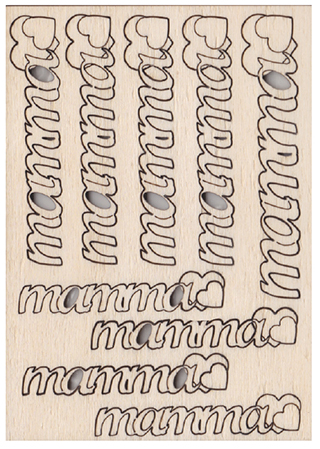 mamma
mamma
mamma
mamma
mamma
mamma
mamma
mamma
mamma